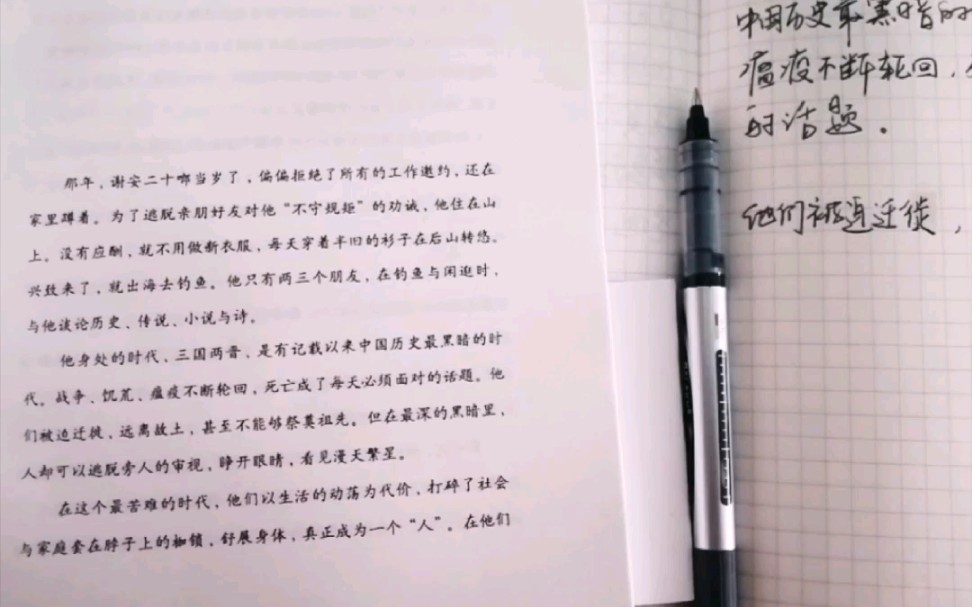 那年，谢安二十啷当岁了，偏偏拒绝了所有的工作邀约，还在
家里蹲着。为了逃脱亲朋好友对他“不守规矩”的劝诫，他住在山
上。没有应酬，就不用做新衣服，每天穿着半旧的衫子在后山转悠。
兴致来了，就出海去钓鱼。他只有两三个朋友，在钓鱼与闲逛时，
与他谈论历史、传说、小说与诗。
他身处的时代，三国两晋，是有记载以来中国历史最黑暗的时
代。战争、饥荒、瘟疫不断轮回，死亡成了每天必须面对的话题。他
们被迫迁徙，远离故土，甚至不能够祭奠祖先。但在最深的黑暗里，
人却可以逃脱旁人的审视，睁开眼睛，看见漫天繁星。
在这个最苦难的时代，他们以生活的动荡为代价，打碎了社会
与家庭套在脖子上的枷锁，舒展身体，真正成为一个“人”。在他们
中国历史最黑暗的
瘟疫不断轮回，
的话题。
他们被迫迁徙，